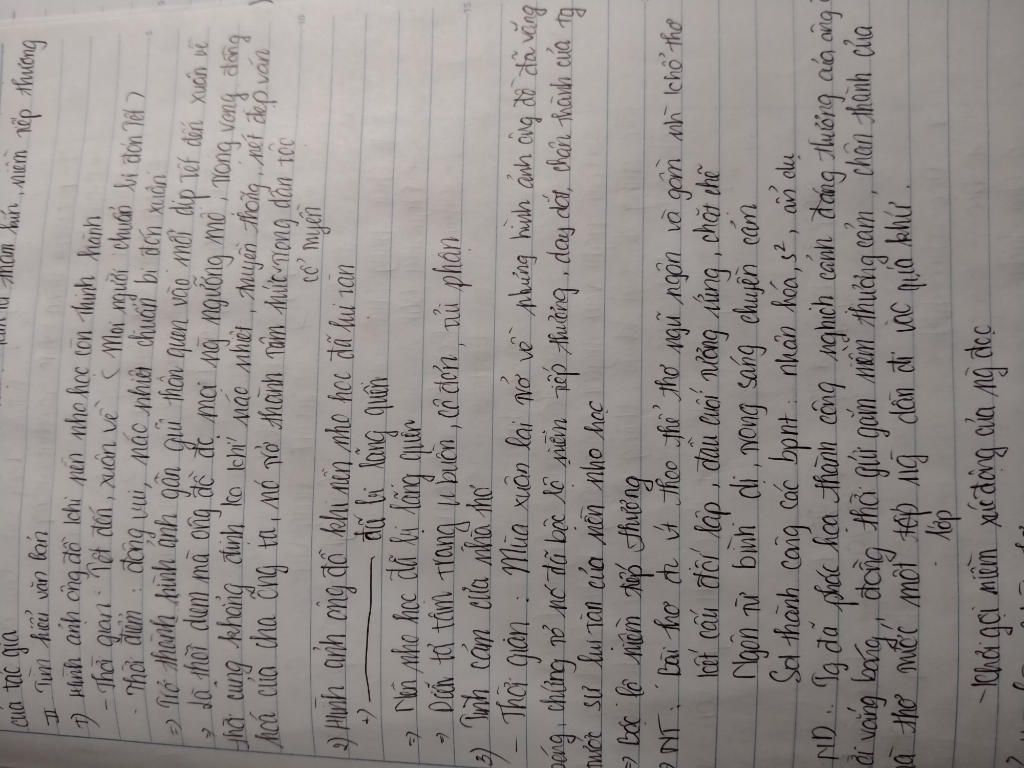 của tác giả
II Tìm hiểu văn bản
1) Hình ảnh ông đồ khi nền nho học còn thịnh hành
- Thời gian: Tết đến, xuân về
- Thời điểm: đông vui, náo nhiệt (Mọi người chuẩn bị đón Tết)
=> Trở thành hình ảnh gần gũi thân quen vào mỗi dịp Tết đến xuân về
=> Là thời điểm mà ông đồ đc mọi ng ngưỡng mộ, trọng vọng đồng
thời cũng khẳng định ko khí náo nhiệt, truyền thống, nét đẹp văn
hoá của cha ông ta, nó trở thành tâm thức trong dân tộc
cổ truyền
2) Hình ảnh ông đồ khi nền nho học đã lui tàn
đã bị lãng quên
=> Nền nho học đã bị lãng quên
=> Diễn tả tâm trạng u buồn, cô đơn, tủi phận
3) Tình cảm của nhà thơ
- Thời gian: Mùa xuân lại nở về nhưng hình ảnh ông đồ đã vắng
bóng, chứng tỏ nó đã bộc lộ niềm tiếc thương, day dứt, chân thành của tg
trước sự lui tàn của nền nho học
=> Bộc lộ niềm tiếc thương
NT: Bài thơ đc vt theo thể thơ ngũ ngôn và gồm nh khổ thơ
kết cấu đối lập, đầu cuối tương ứng, chặt chẽ
Ngôn từ bình dị, trong sáng truyền cảm
Sd thành công các bpnt: nhân hóa, s², ẩn dụ
ND: Tg đã phác họa thành công nghịch cảnh đáng thương của ông
thời vắng bóng, đồng thời gửi gắm niềm thương cảm, chân thành của
nhà thơ trước một lớp ng dần đi vc quá khứ.
lớp
- Khơi gợi niềm xúc động của ng đọc